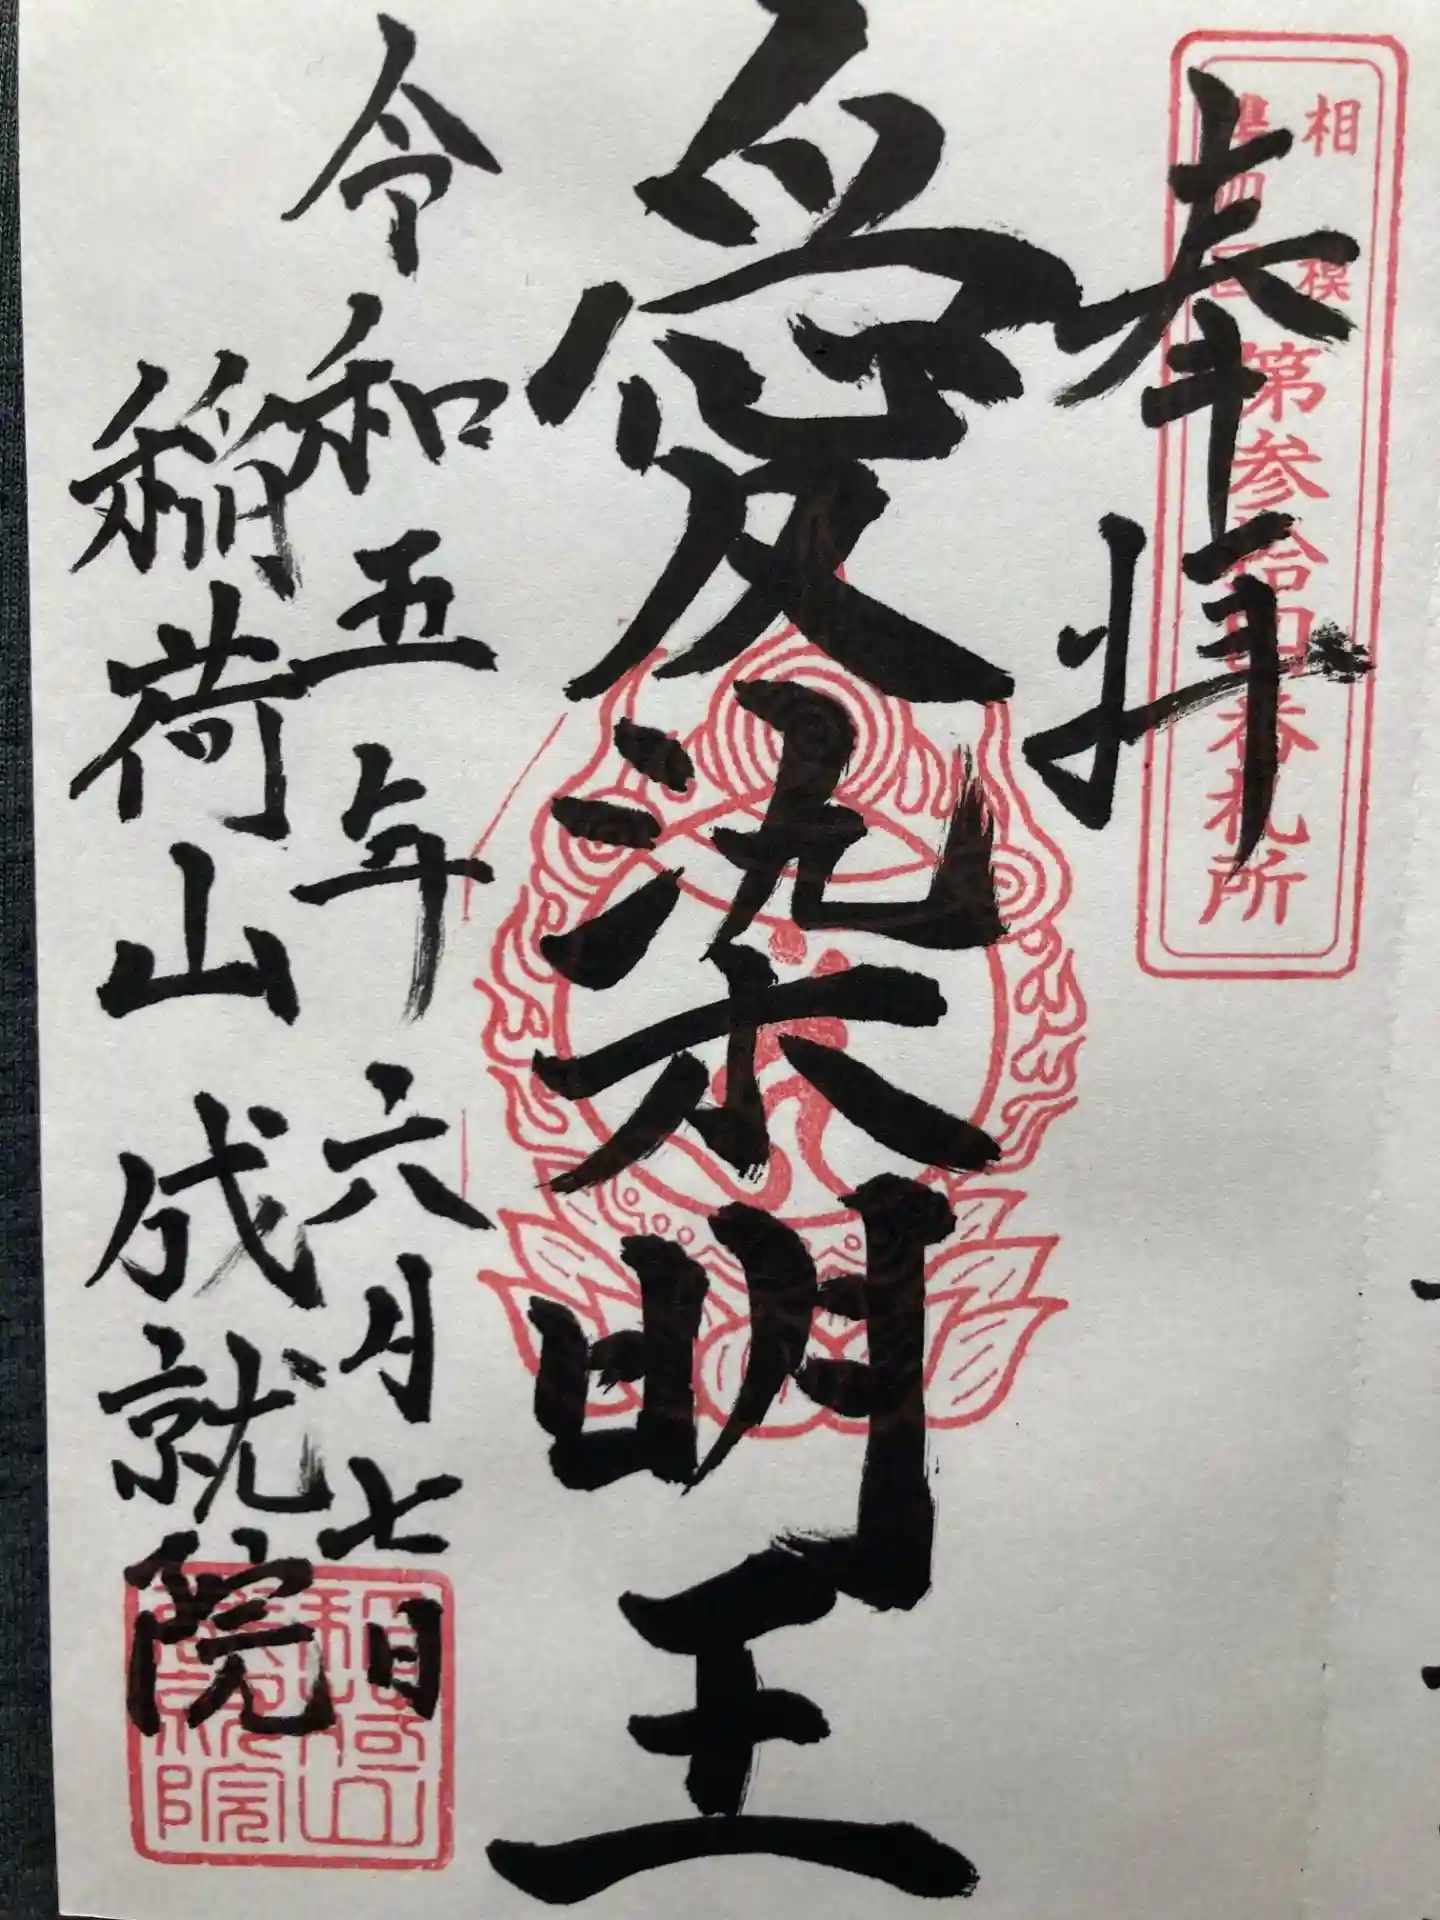 奉拝
相模
準四国
第参拾四番札所
愛染明王
令和五年六月七日
稲荷山成就院
稲荷山
成就院